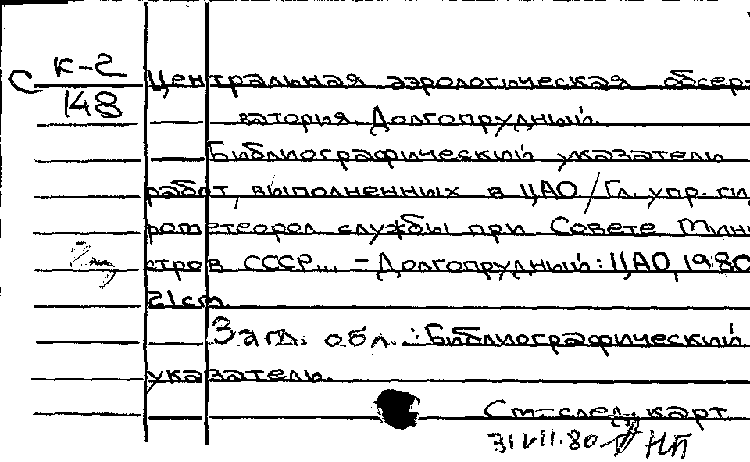 С К-2
148
Центральная аэрологическая обсер-
ватория. Долгопрудный.
Библиографический указатель
работ, выполненных в ЦАО / Гл. упр. гид
рометеорол. службы при Совете Мини
стров СССР... – Долгопрудный: ЦАО, 1980
21 cm.
Загл. обл.: Библиографический
указатель.
См. след. карт
31 VII.80 НП